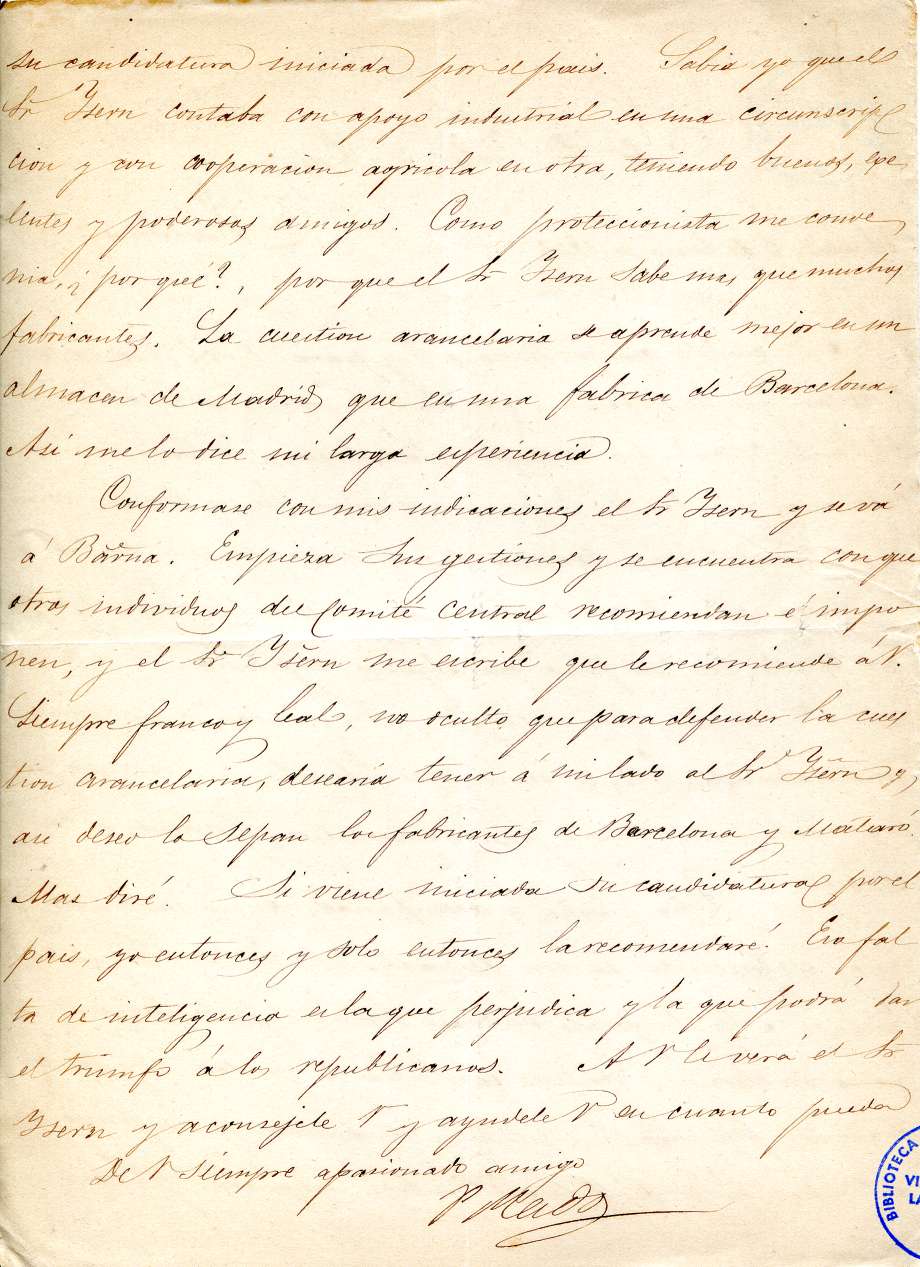 su candidatura iniciada por el pais. Sabia yo que el
Sr Ysern contaba con apoyo industrial en una circunscrip
cion y con cooperacion agricola en otra, teniendo buenos, exe
lentes y poderosos amigos. Como proteccionista me conve
nia, ¿por qué?, por que el Sr Ysern sabe mas que muchos
fabricantes. La cuestion arancelaria se aprende mejor en un
almacen de Madrid que en una fabrica de Barcelona.
Asi me lo dice mi larga esperiencia.
Conformase con mis indicaciones el Sr Ysern y se vá
á Barna. Empieza sus gestiones y se encuentra con que
otros individuos del Comité central recomiendan é impo
nen, y el Sr Ysern me escribe que le recomiende á V.
Siempre franco y leal, no oculto que para defender la cues
tion arancelaria, desearia tener á mi lado al Sr Ysern y
asi deseo lo sepan los fabricantes de Barcelona y Mataro.
Mas diré. Si viene iniciada su candidatura por el
pais, yo entonces y solo entonces la recomendaré. Esa fal
ta de inteligencia es la que perjudica y la que podrá dar
el triunfo á los republicanos. A V le verá el Sr
Ysern y aconsejele V y ayudele V en cuanto pueda
De V siempre apasionado amigo
P Madoz
BIBLIOTECA
VI
LA